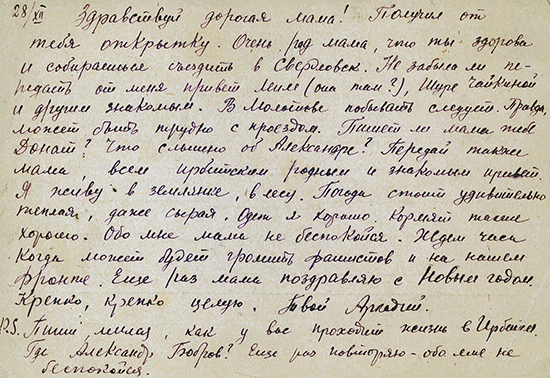 28/XII Здравствуй дорогая мама! Получил от
тебя открытку. Очень рад мама, что ты здорова
и собираешься съездить в Свердловск. Не забыла ли пе-
редать от меня привет Миле (она там?), Шуре Чайкиной
и другим знакомым. В Молотове побывать следует. Правда,
может быть трудно с проездом. Пишет ли мама тебе
Донат? Что слышно об Александре? Передай также
мама, всем ирбитским родным и знакомым привет.
Я живу в землянке, в лесу. Погода стоит удивительно
теплая, даже сырая. Одет я хорошо. Кормят также
хорошо. Обо мне мама не беспокойся. Ждем часа
когда может будет громить фашистов и на нашем
фронте. Еще раз мама поздравляю с Новым годом.
Крепко, крепко целую. Твой Аркадий.
P.S. Пиши милая, как у вас проходит жизнь в Ирбите.
Где Александр Бобров? Еще раз повторяю - обо мне не
беспокойся.